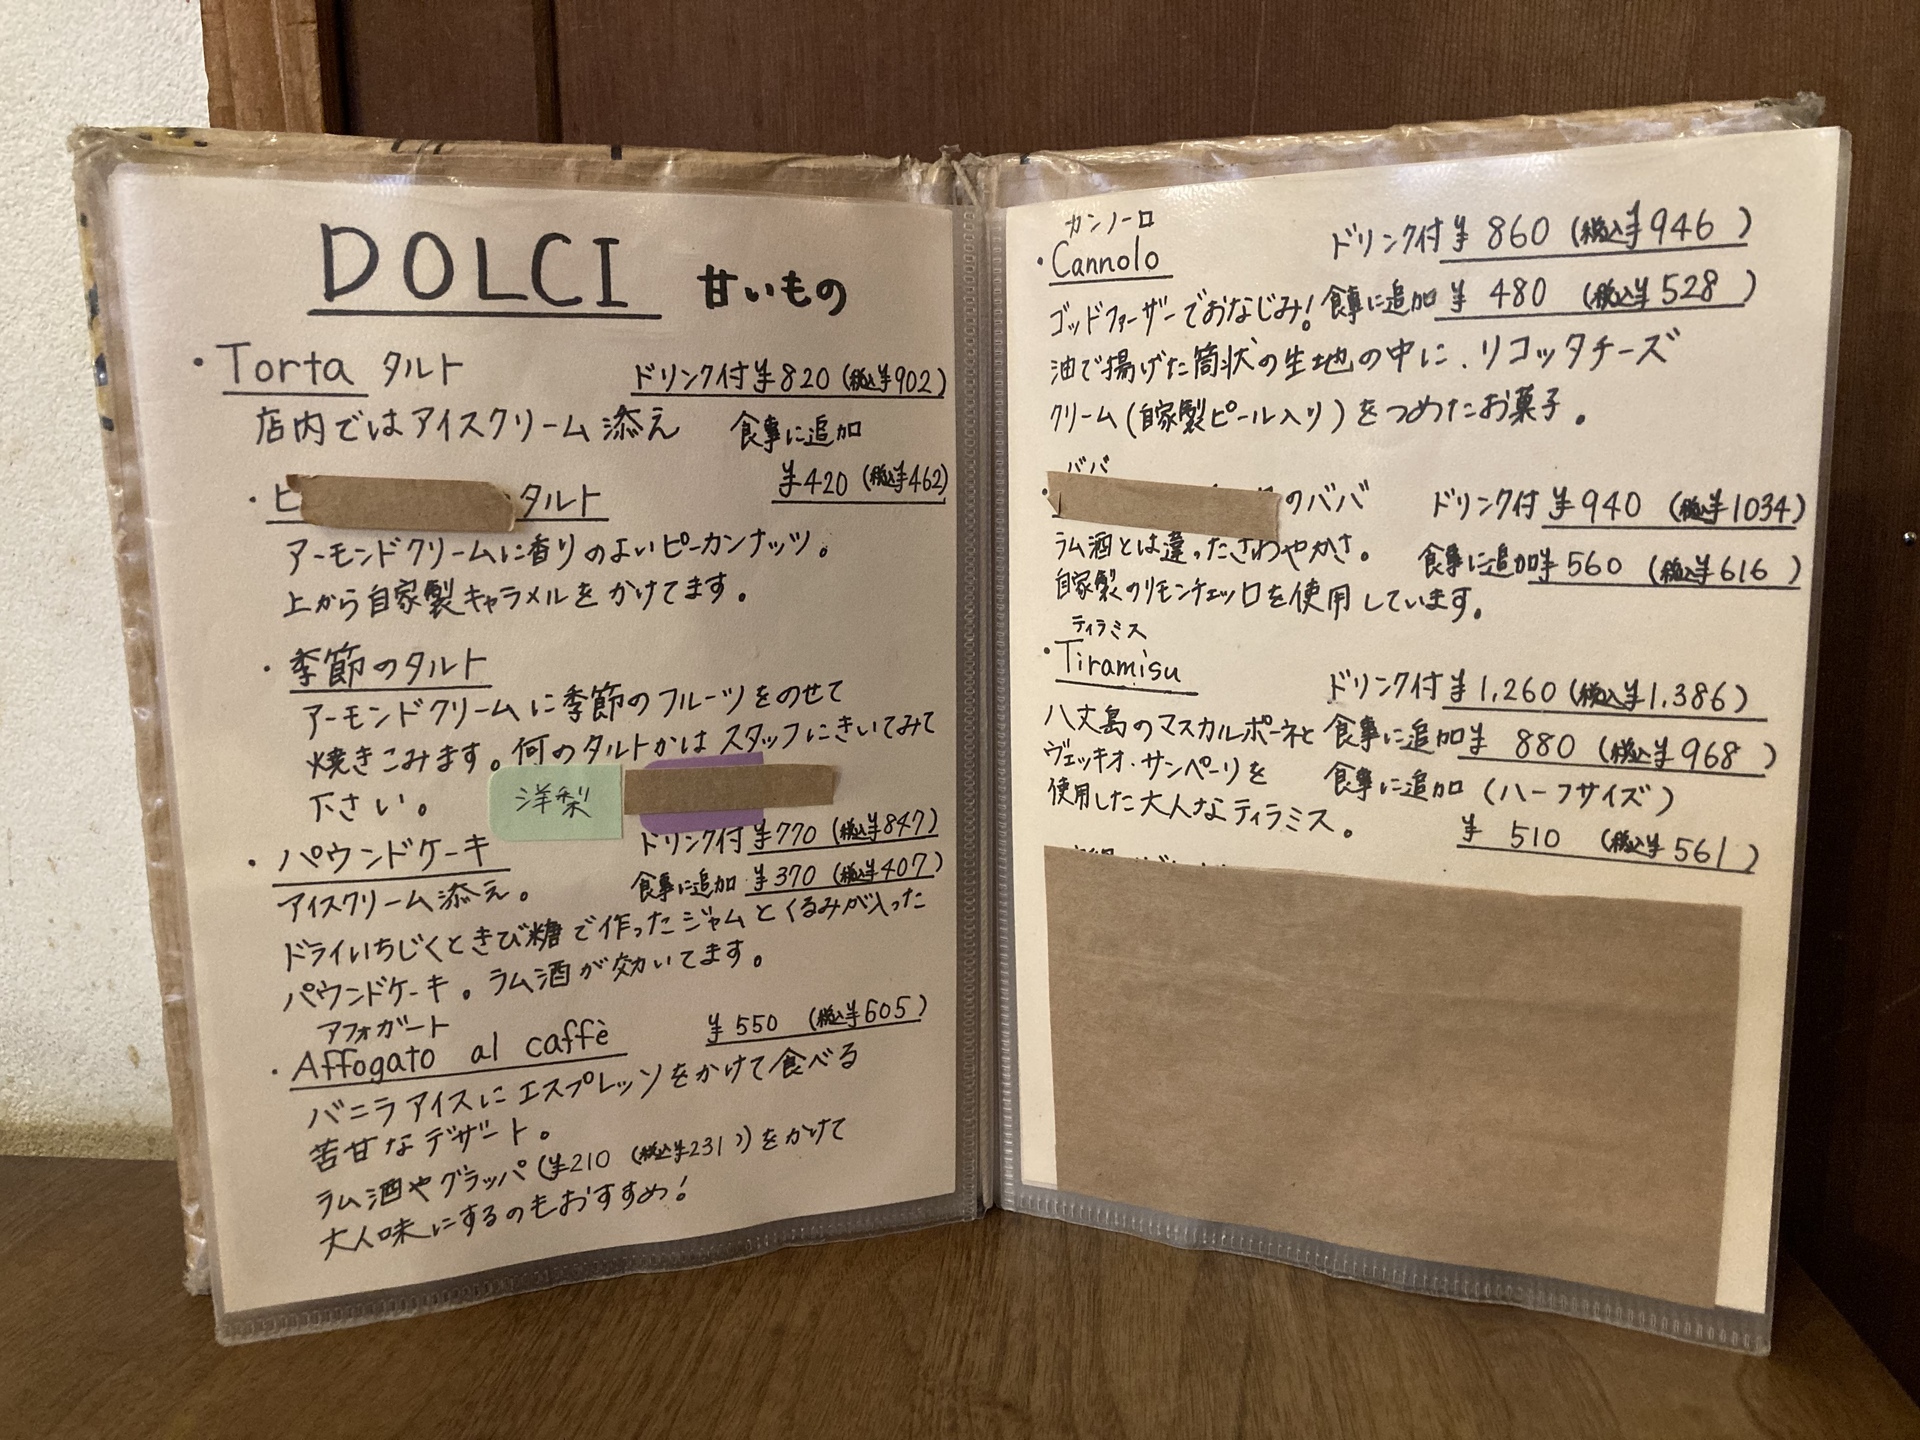 DOLCI 甘いもの
・Torta タルト ドリンク付¥820(税込¥902)
店内ではアイスクリーム添え 食事に追加
¥420(税込¥462)
・ピ タルト
アーモンドクリームに香りのよいピーカンナッツ。
上から自家製キャラメルをかけてます。
・季節のタルト
アーモンドクリームに季節のフルーツをのせて
焼きこみます。何のタルトかはスタッフにきいてみて
下さい。 洋梨
・パウンドケーキ ドリンク付¥770(税込¥847)
アイスクリーム添え。 食事に追加 ¥370(税込¥407)
ドライいちじくときび糖で作ったジャムとくるみが入った
パウンドケーキ。ラム酒が効いてます。
アフォガート
・Affogato al caffè ¥550(税込¥605)
バニラアイスにエスプレッソをかけて食べる
苦甘なデザート。
ラム酒やグラッパ(¥210(税込¥231))をかけて
大人味にするのもおすすめ!
カンノーロ
・Cannolo ドリンク付¥860(税込¥946)
ゴッドファーザーでおなじみ! 食事に追加¥480(税込¥528)
油で揚げた筒状の生地の中に、リコッタチーズ
クリーム(自家製ピール入り)をつめたお菓子。
ババ
のババ ドリンク付¥940(税込¥1034)
ラム酒とは違ったさわやかさ。 食事に追加¥560(税込¥616)
自家製のリモンチェッロを使用しています。
ティラミス
・Tiramisu ドリンク付¥1,260(税込¥1,386)
八丈島のマスカルポーネと 食事に追加¥880(税込¥968)
ヴェッキオ・サンペーリを 食事に追加(ハーフサイズ)
使用した大人なティラミス。 ¥510(税込¥561)